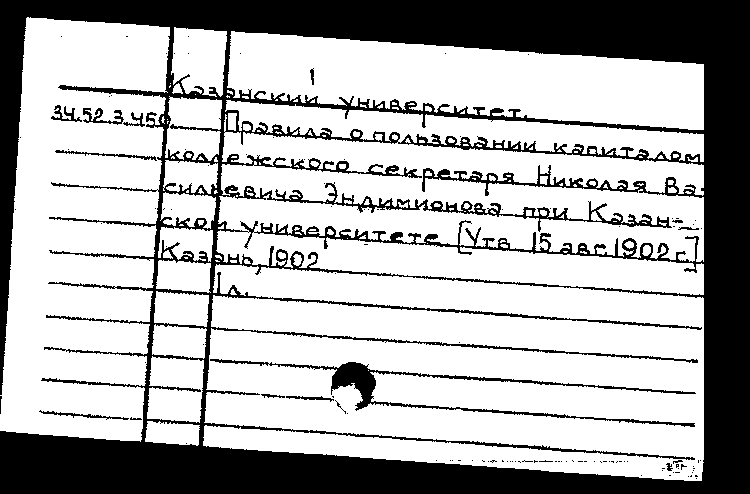 1
Казанский университет.
34.52.3.450. Правила о пользовании капиталом
коллежского секретаря Николая Ва-
сильевича Эндимионова при Казан-
ском университете [Утв. 15 авг. 1902 г.]
Казань, 1902
1 л.